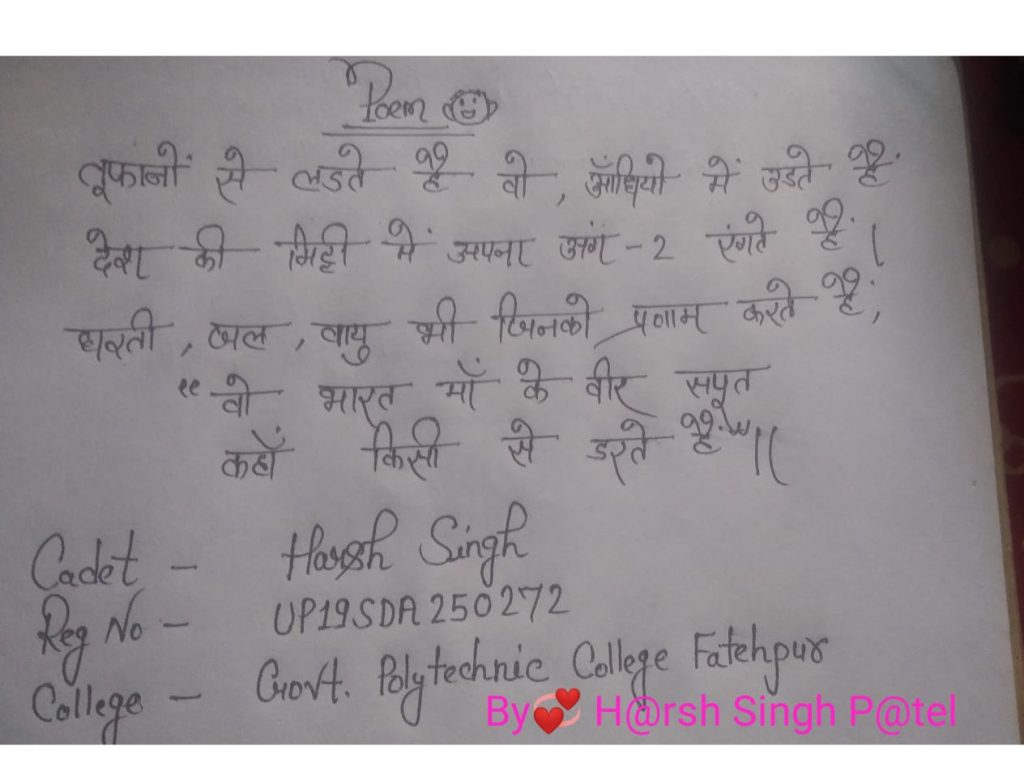 Poem
तूफानों से लडते है वो , आँधियो में उडते हैं
देश की मिट्टी में अपना अंग -2 रंगते हैं।
धरती , जल , वायु भी जिनको प्रणाम करते हैं,
"वो भारत माँ के वीर सपूत
कहाँ किसी से डरते हैं"।।
Cadet - Harsh Singh
Reg No - UP19SDA250272
College - Govt. Polytechnic College Fatehpur
By💞 H@rsh Singh P@tel